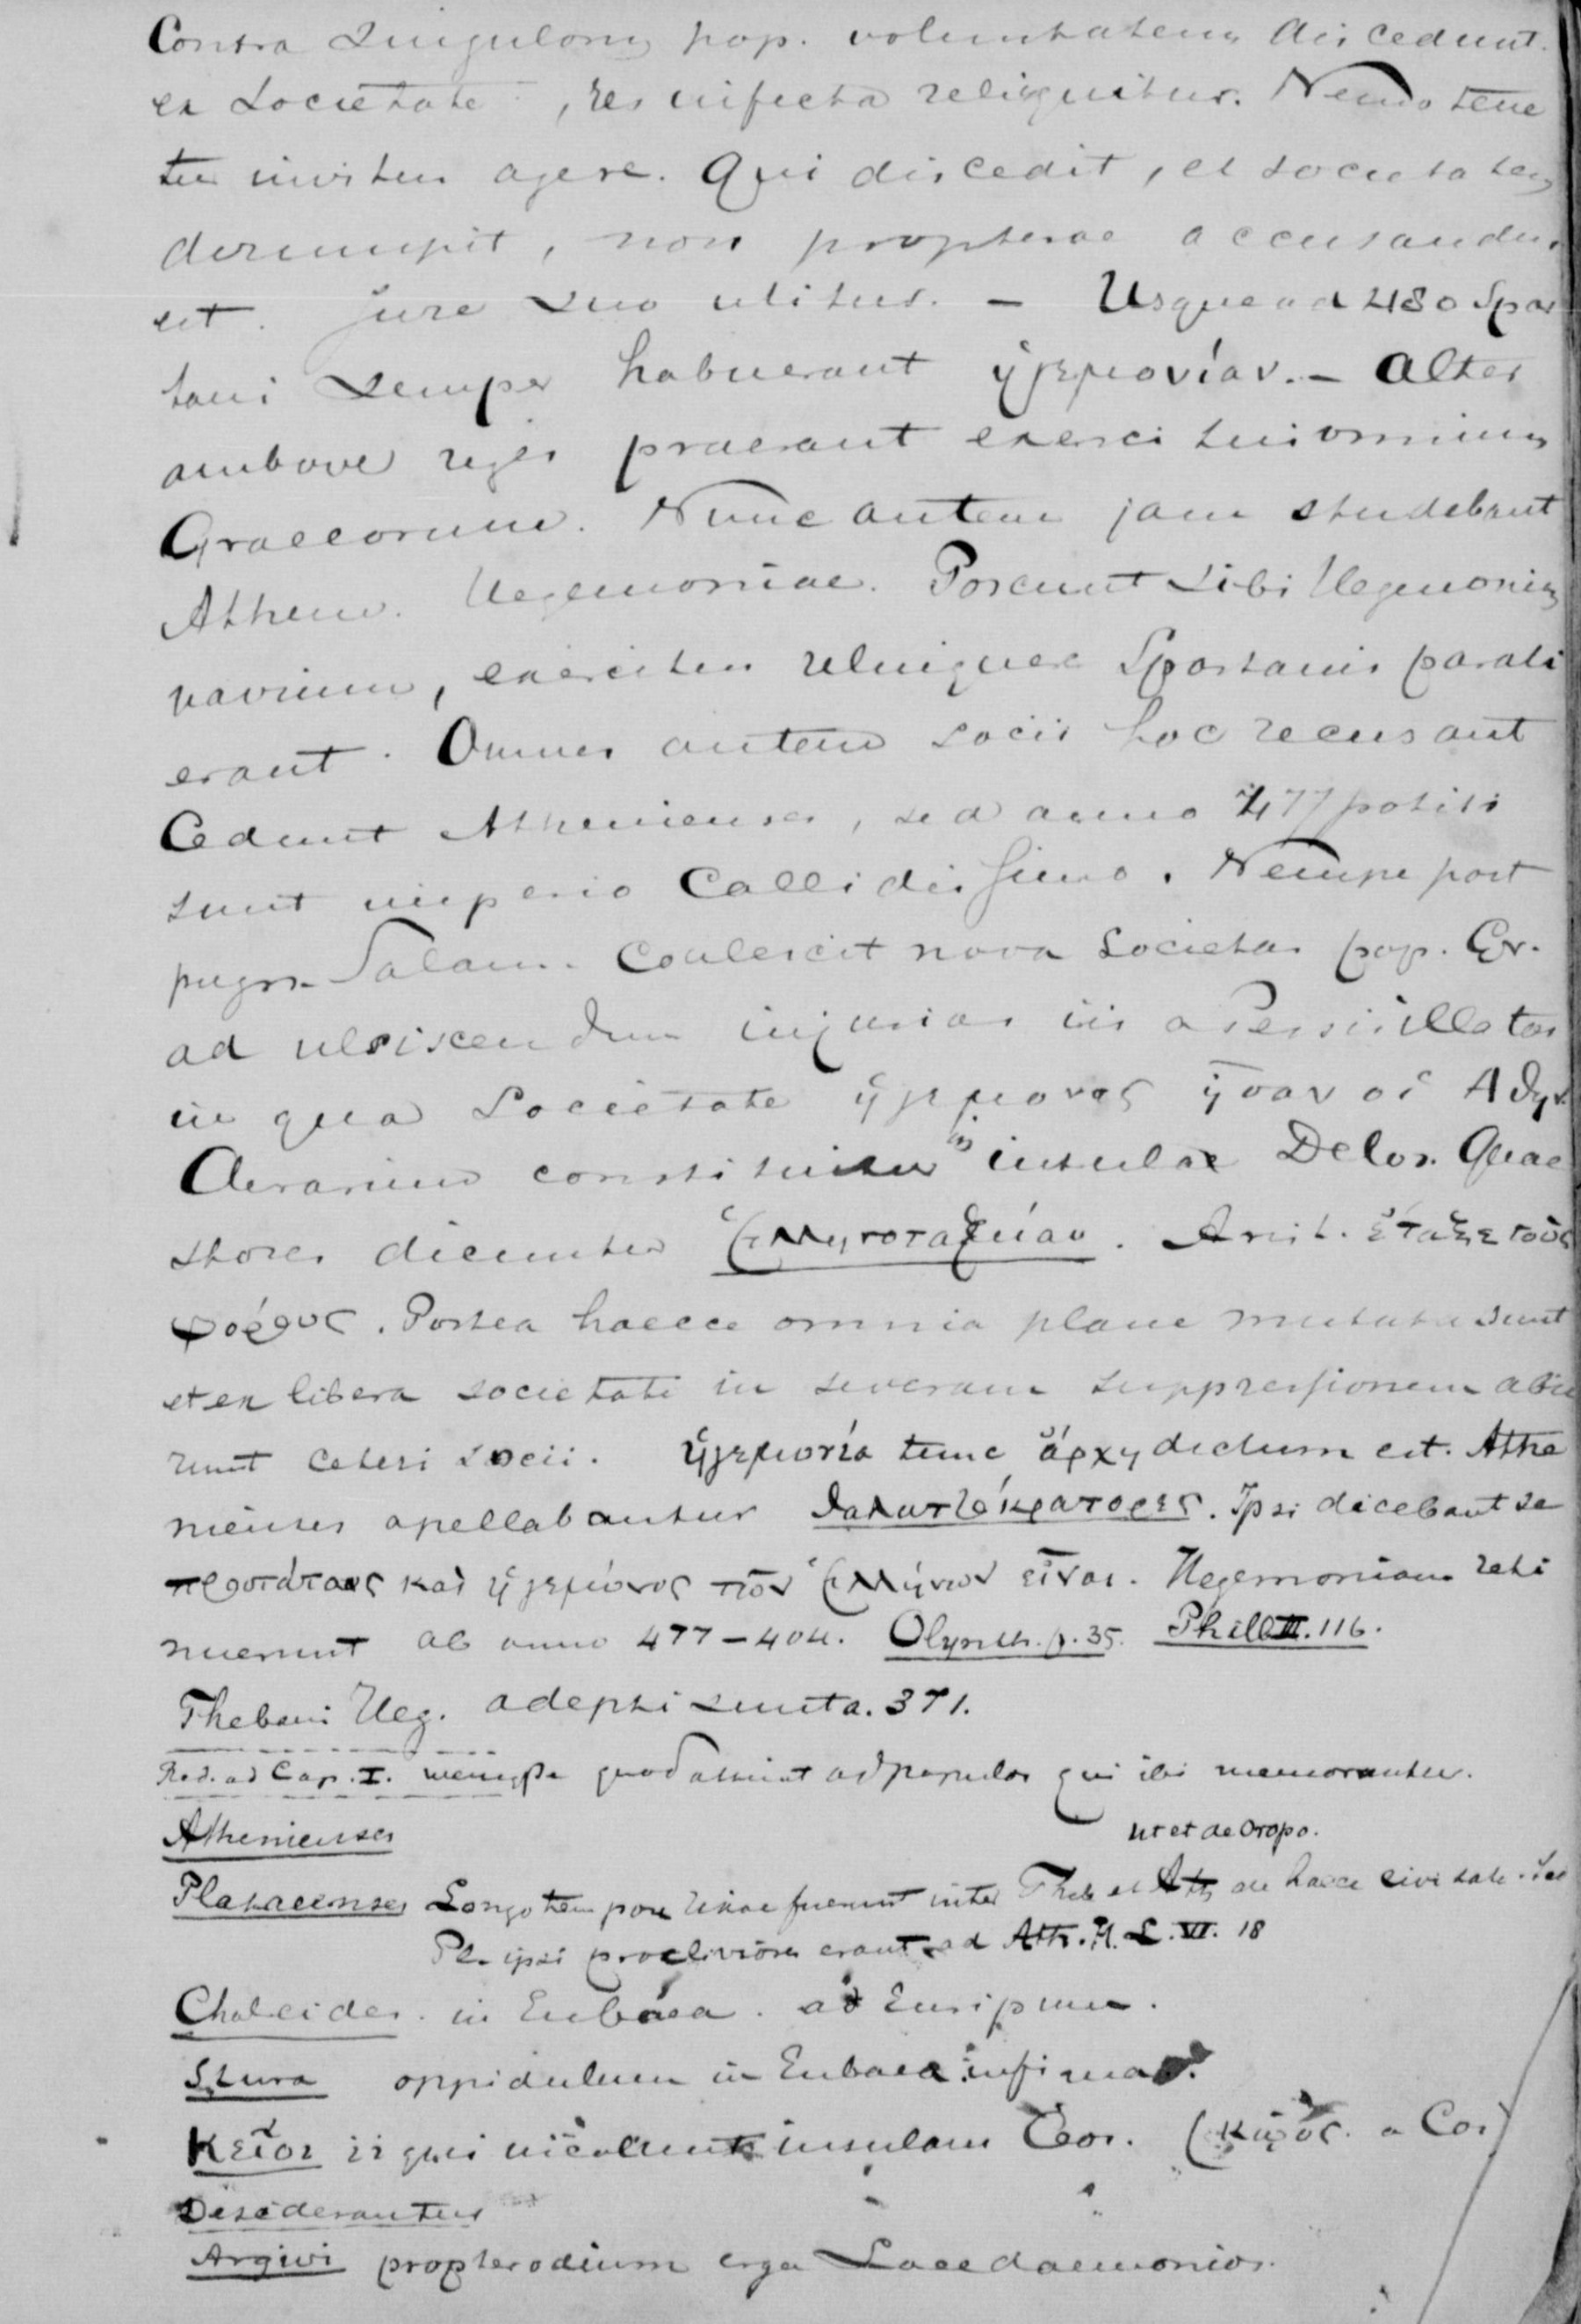 Contra singulorum pop. voluntatem discedunt.
ex societate, res infecta relinquitur. Nemo tene
tur invitus agere. Qui discedit, et societatem
dirumpit, non propterae accusandus
est. Jure suo utitur. – Usque ad 480 Spar
tani semper habuerant ἡγεμονίαν. – Alter
ambove reges praeerant exercitui omnium
Graecorum. Nunc autem jam studebant
Athen. Hegemoniae. Poscunt sibi Hegemoniam
navium, exercitus relinquere Spartanis parati
erant. Omnes autem socii hoc recusant
Cedunt Athenienses, sed anno 477 potiti
sunt imperio callidissimo. Nempe post
pugn. Salam. Coalescit nova societas pop. Gr.
ad ulciscendum injurias iis a Persis illatas
in qua societate ἡγεμονες ἦσαν οἱ Αθην.
Aerarium constituitur in insula Delos. Quae
stores dicuntur Ἑλληνοταμίαι. Arist. ἔταξε τοὺς
φόρους. Postea haecce omnia plane mutata sunt
et ex libera societate in severam suppressionem abie
runt ceteri socii. ἡγεμονία tunc ἄρχη dictum est. Athe
nienses apellabantur θαλαττοκράτορες. Ipsi dicebant se
προστάτας καὶ ἡγεμόνας τῶν Ἑλλήνων εἶναι. Hegemoniam reti
nuerunt ab anno 477–404. Olynth. p. 35. Phill III. 116.
Thebani Heg. adepti sunt a. 371.
Red. ad Cap. I. quod attinet ad populos qui ibi memorantur.
Athenienses
ut et de Oropo.
Plataeenses Longo tempore rixae fuerunt inter Theb et Ath de haece civitate. Sed
Pl. ipsi procliviores erant ad Ath. H. L. VI. 18
Chalcides. in Euboea. ad Euripum.
Stura oppidulum in Euboea infima.
Κεῖοι ii qui incolunt insulam Ceos. (κῷος. a Cos)
Desiderantur
Argivi propter odium erga Lacedaemonios.